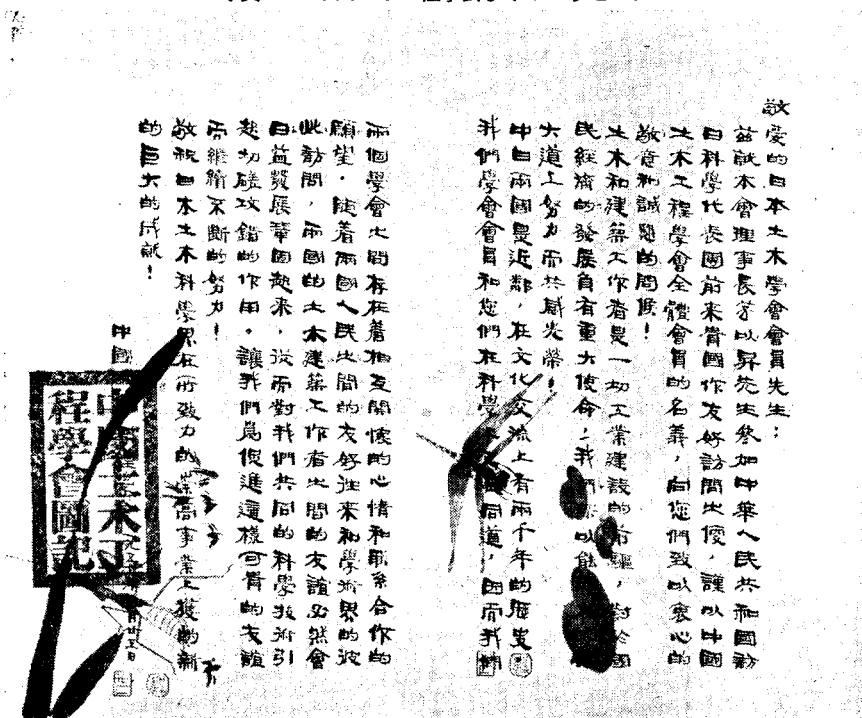 敬愛的日本土木學會會員先生：
茲趁本會理事長茅以昇先生參加中華人民共和國訪
日科學代表團前來貴國作友好訪問之便，謹以中國
土木工程學會全體會員的名義，向您們致以衷心的
敬意和誠懇的問候！
土木和建築工作者是一切工業建設的前驅，對於國
民經濟的發展負有重大使命，我們 以能
大道上努力而共感光榮！
中日兩國是近鄰，在文化交流上有兩千年的歷史
我們學會會員和您們在科學 同道，因而我們
兩個學會之間存在着相互關懷的心情和聯系合作的
願望。隨着兩國人民之間的友好往來和學術界的彼
此訪問，兩國的土木建築工作者之間的友誼必然會
日益發展鞏固起來，從而對我們共同的科學技術引
起切磋攻錯的作用。讓我們爲促進這樣可貴的友誼
而繼續不斷的努力！
敬祝日本土木科學界在所致力的崇高事業上獲致新
的巨大的成就！
中國
中國土木工
程學會圖記
月廿五日